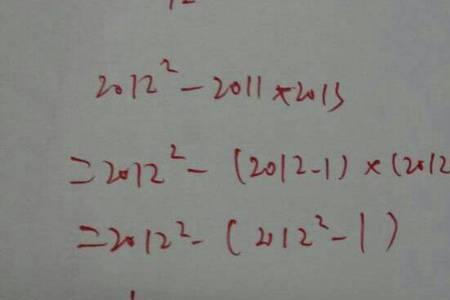 2012² - 2011 × 2013
= 2012² - (2012-1) × (2012
= 2012² - (2012² - 1)